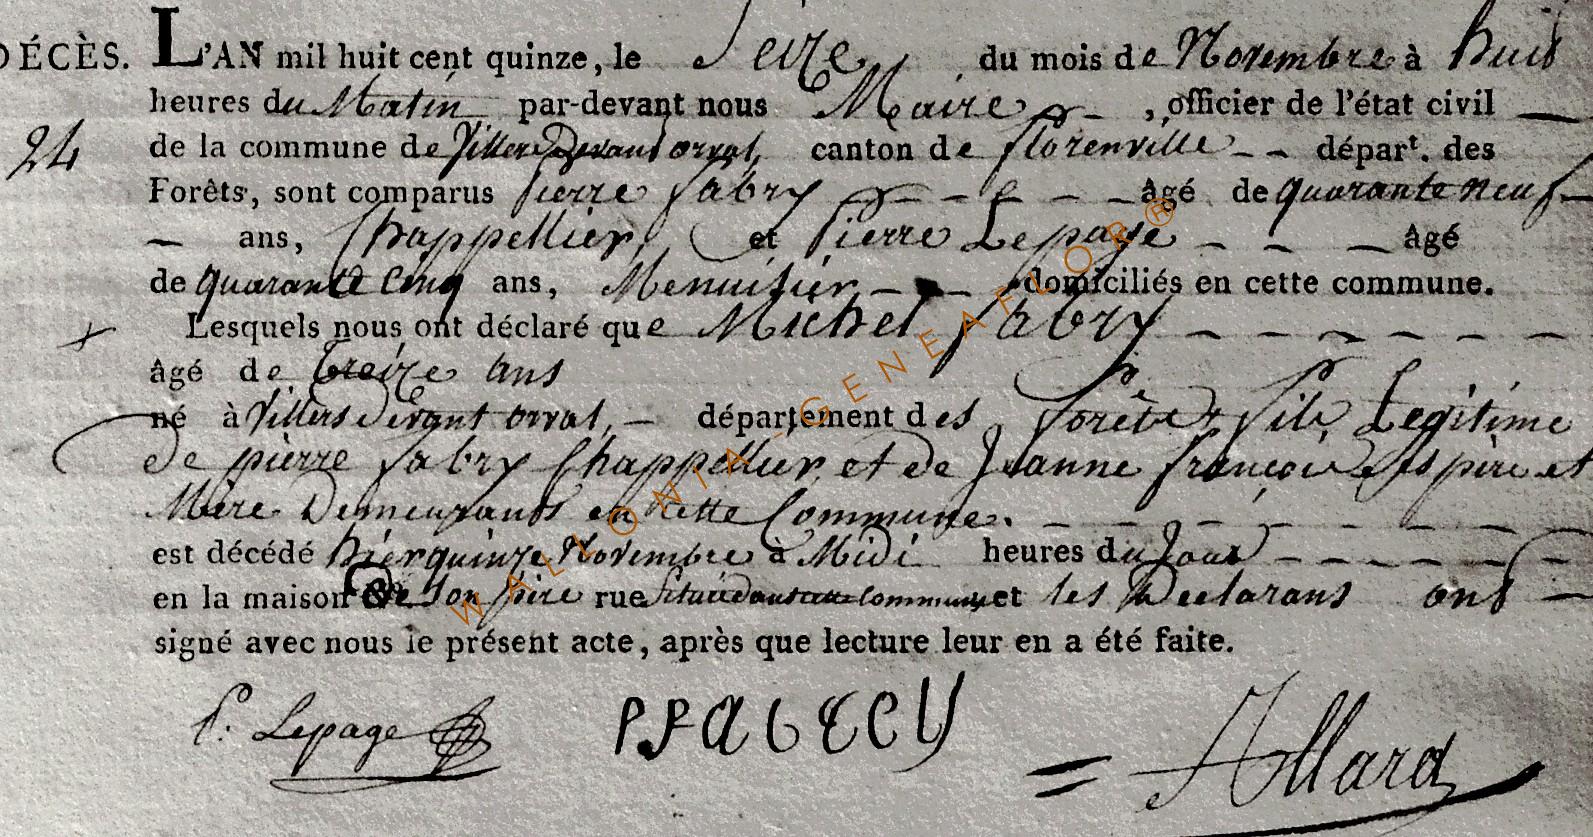 DÉCÈS. L'AN mil huit cent quinze, le Seize du mois de Novembre à huit
heures du Matin par-devant nous Maire, officier de l'état civil
24 de la commune de Villers Devant orval, canton de florenville départ. des
Forêts, sont comparus Pierre fabry âgé de quarante neuf
ans, Chappellier, et Pierre Lepage âgé
de quarante cinq ans, Menuisier domiciliés en cette commune.
Lesquels nous ont déclaré que Michel fabry
âgé de treize ans
né à Villers devant orval, département des forêts, fils Legitime
De pierre fabry Chappellier, et de Jeanne françois ses père et
Mère Demeurants en cette Commune.
est décédé hier quinze Novembre à Midi heures du Jour
en la maison de son père rue située dans cette commune et les Declarans ont
signé avec nous le présent acte, après que lecture leur en a été faite.
P. Lepage PFABECY Allard
WALLONIA-GENEAFLOR®